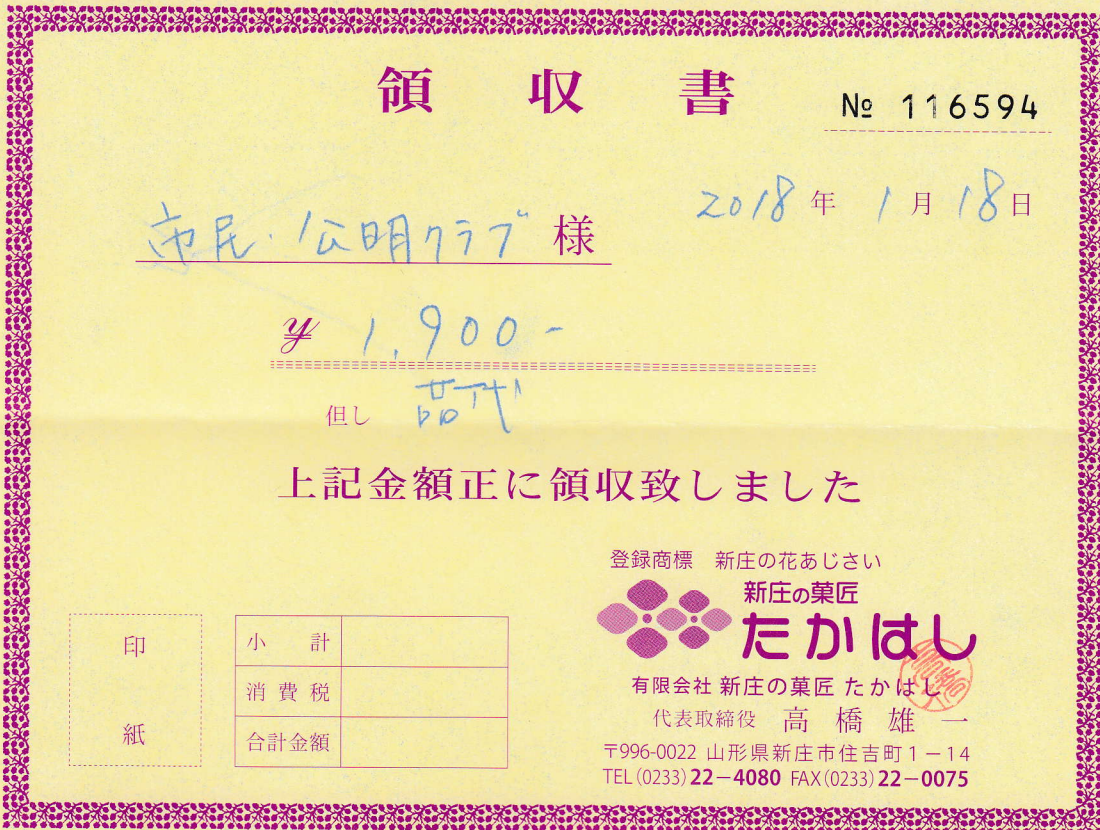 領収書
№ 116594
2018年1月18日
市民・公明クラブ 様
¥ 1,900-
但し 品代
上記金額正に領収致しました
登録商標 新庄の花あじさい
新庄の菓匠
たかはし
有限会社 新庄の菓匠 たかはし
代表取締役 高橋雄一
〒996-0022 山形県新庄市住吉町1-14
TEL(0233)22-4080 FAX(0233)22-0075
印紙
小計
消費税
合計金額